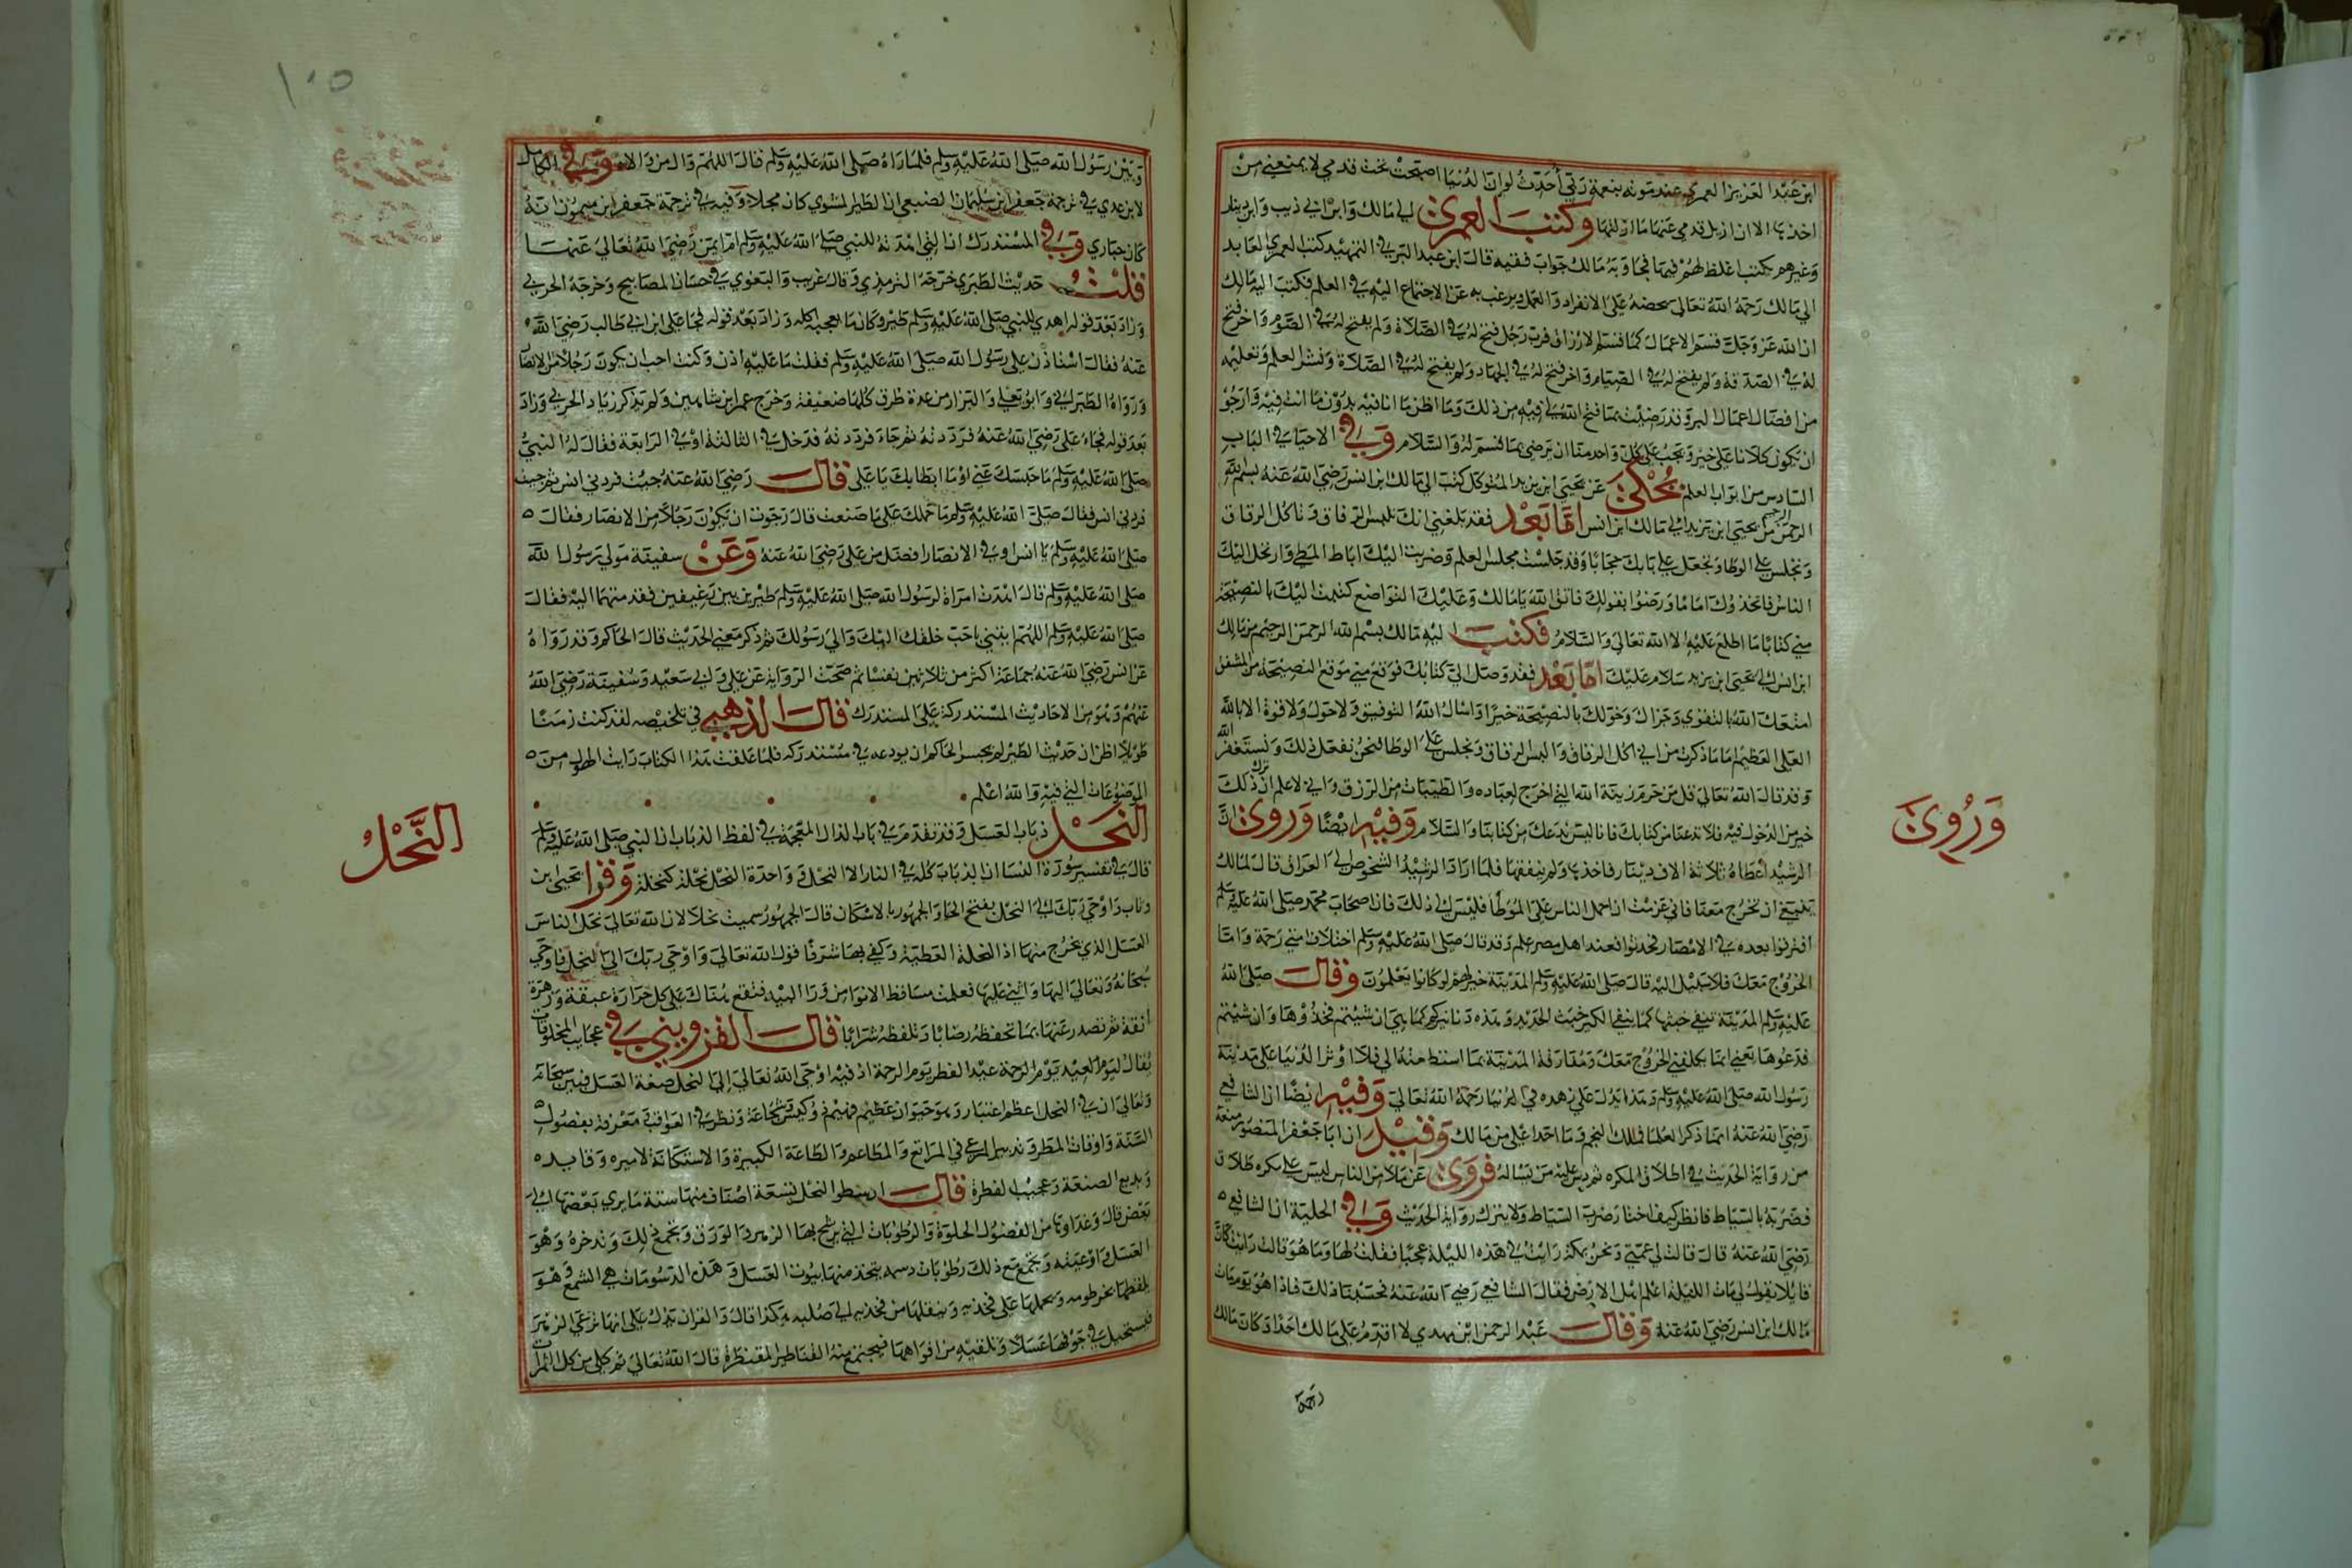 ابن عبد العزيز العمري عند موته بنعمة ربي أحدث لو ان الدنيا اصبحت تحت قدمي لا يمنعني من
اخذها الا ان ازيل قدمي عنها ما ازلتها وكتب العمري الي مالك وابن ابي ذيب وابن دينار
وغيرهم بكتب اغلظ لهم فيها فجاوبه مالك جواب فقيه قال ابن عبد البر في التمهيد كتب العمري العابد
الي مالك رحمه الله تعالى يحضه على الانفراد والعمل ويرغب به عن الاجتماع اليه في العلم فكتب اليه مالك
ان الله عز وجل قسم الاعمال كما قسم الارزاق فرب رجل فتح له في الصلاة ولم يفتح له في الصوم واخر فتح
له في الصدقة ولم يفتح له في الصيام واخر فتح له في الجهاد ولم يفتح له في الصلاة ونشر العلم وتعليمه
من افضل اعمال البر وقد رضيت بما فتح الله لي فيه من ذلك وما اظن ما انا فيه بدون ما انت فيه وارجو
ان يكون كلانا على خير ويجب على كل واحد منا ان يرضى بما قسم له والسلام وفي الاحيا في الباب
السادس من ابواب العلم يحكى عن يحيى ابن يزيد المتوكل كتب الى مالك ابن انس رضي الله عنه بسم الله
الرحمن الرحيم من يحيى ابن يزيد الى مالك ابن انس اما بعد فقد بلغني انك تلبس الرقاق وتاكل الرقاق
وتجلس على الوطا وتجعل على بابك حجابا وقد جلست مجلس العلم وضربت اليك اباط المطي وارتحل اليك
الناس فاتخذوك اماما ورضوا بقولك فاتق الله يا مالك وعليك التواضع كتبت اليك بالنصيحة
مني كتابا ما اطلع عليه الا الله تعالى والسلام فكتب اليه مالك بسم الله الرحمن الرحيم من مالك
ابن انس الى يحيى ابن يزيد سلام عليك اما بعد فقد وصل الي كتابك فوقع مني موقع النصيحة من المشفق
امتعك الله بالتقوى وجزاك وخولك بالنصيحة خيرا واسال الله التوفيق ولا حول ولا قوة الا بالله
العلى العظيم اما ما ذكرت من اني اكل الرقاق والبس الرقاق وتجلس على الوطا فنحن نفعل ذلك ونستغفر الله
وقد قال الله تعالى قل من حرم زينة الله التي اخرج لعباده والطيبات من الرزق واني لا علم ان ترك ذلك
خير من الدخول فيه فلا تدعنا من كتابك فانا ليس ندعك من كتابنا والسلام وفيه ايضا وروي ان
الرشيد أعطاه ثلاثة الاف دينار فاخذها ولم ينفقها فلما اراد الرشيد الشخوص الى العراق قال لمالك
ينبغي ان تخرج معنا فاني عزمت ان احمل الناس على الموطأ فليس الى ذلك فان اصحاب محمد صلى الله عليه وسلم
افترقوا بعده في الامصار فحدثوا فعند اهل مصر علم وقد قال صلى الله عليه وسلم اختلاف امتي رحمة واما
الخروج معك فلا سبيل اليه قال صلى الله عليه وسلم المدينة خير لهم لو كانوا يعلمون وقال صلى الله
عليه وسلم المدينة تنفي خبثها كما ينفي الكير خبث الحديد وهذه دنانيركم كما هي ان شيتم فخذوها وان شيتم
فدعوها يعني انما تكلفني الخروج معك ومفارقة المدينة بما اسقط منه الي فلا اوثر الدنيا على مدينة
رسول الله صلى الله عليه وسلم وهذا يدل على زهده في الدنيا رحمه الله تعالى وفيه ايضا ان الشافعي
رضي الله عنه انما ذكر العلما فمالك النجم وما احد اعلى من مالك وقيل ان ابا جعفر المنصور منعه
من رواية الحديث في طلاق المكره ثم دس عليه من يساله فروى عن ملا من الناس ليس على مكره طلاق
فضربه بالسياط فانظر كيف اختار ضرب السياط ولا يترك رواية الحديث وفي الحلية ان الشافعي
رضي الله عنه قال قالت لي عمتي ونحن بمكة رايت في هذه الليلة عجبا فقلت لها وما هو قالت رايت كان
قايلا يقول لي مات الليلة اعلم اهل الارض فقال الشافعي رضي الله عنه فحسبنا ذلك فاذا هو يوم مات
مالك ابن انس رضي الله عنه وقال عبد الرحمن ابن مهدي لا اقدم على مالك احدا وكان مالك
وروي
وبين رسول الله صلى الله عليه وسلم فلما راه صلى الله عليه وسلم قال اللهم وال من والاه وفي الكامل
لابن عدي في ترجمة جعفر ابن سليمان الضبعي ان الطير المشوي كان حجلا وفيه في ترجمة جعفر ابن ميمون انه
كان حباري وفي المستدرك ان التي اهدته للنبي صلى الله عليه وسلم ام ايمن رضي الله تعالى عنها
قلت حديث الطبري خرجه الترمذي وقال غريب والبغوي في حسان المصابيح وخرجه الحربي
وزاد بعد قوله اهدي للنبي صلى الله عليه وسلم طير وكان مما يعجبه اكله وزاد بعد قوله فجا علي ابن ابي طالب رضي الله
عنه فقال استاذن على رسول الله صلى الله عليه وسلم فقلت ما عليه اذن وكنت احب ان يكون رجلا من الانصار
ورواه الطبراني وابو يعلي والبزار من عدة طرق كلها ضعيفة وخرج عمر ابن شاهين ولم يذكر زياد الحربي وزاد
بعد قوله فجاء علي رضي الله عنه فرددته ثم جاء فرددته فدخل في الثالثة او في الرابعة فقال له النبي
صلى الله عليه وسلم ما حبسك عني او ما ابطا بك يا علي قال رضي الله عنه جيت فردني انس ثم جيت
فردني انس فقال صلى الله عليه وسلم ما حملك على ما صنعت قال رجوت ان يكون رجلا من الانصار فقال
صلى الله عليه وسلم يا انس او في الانصار افضل من علي رضي الله عنه وعن سفينة مولي رسول الله
صلى الله عليه وسلم قال اهدت امراة لرسول الله صلى الله عليه وسلم طيرين بين رغيفين فقدمتهما اليه فقال
صلى الله عليه وسلم اللهم ايتني باحب خلقك اليك والي رسولك ثم ذكر معنى الحديث قال الحاكم وقد رواه
عن انس رضي الله عنه جماعة اكثر من ثلاثين نفسا ثم صحت الرواية عن علي وابي سعيد وسفينة رضي الله
عنهم وهو من الاحاديث المستدركة على المستدرك قال الذهبي في تلخيصه لقد كنت زمنا
طويلا اظن ان حديث الطير لم يجسر الحاكم ان يودعه في مستدركه فلما علقت هذا الكتاب رايت الهول من
الموضوعات التي فيه والله اعلم
النحل ذباب العسل وقد تقدم في باب الذال المعجمة في لفظ الذباب ان النبي صلى الله عليه وسلم
قال في تفسير سورة النسا ان الذباب كله في النار الا النحل وواحدة النحل نحلة كنخلة وقرا يحيى بن
وثاب واوحى ربك الى النحل بفتح الحا والجمهور بالاسكان قال الجمهور سميت نحلا لان الله تعالى نحل الناس
العسل الذي يخرج منها اذ النحلة العطية وكفي بها شرفا قول الله تعالى واوحى ربك الى النحل فاوحى
سبحانه وتعالى اليها واثنى عليها فعلمت مساقط الانوا من ورا البيد فتقع هناك على كل حرارة عبقة وزهرة
انقة ثم تصدر عنها بما تحفظه رضابا وتلفظه شرابا قال القزويني في عجايب المخلوقات
يقال ليوم العيد يوم الرحمة عيد الفطر يوم الرحمة اذ فيه اوحى الله تعالى الى النحل صنعة العسل فبين سبحانه
وتعالى ان في النحل اعظم اعتبار وهو حيوان عظيم فهيم وكيس شجاعة ونظر في العواقب ومعرفة بفصول
السنة واوقات المطر وتدبير المرعى في المراتع والمطاعم والطاعة الكبيرة والاستكانة لاميره وقايده
وبديع الصنعة وعجيب الفطرة قال ارسطوا النحل تسعة اصناف منها ستة ما يري بعضها الى
بعض قال وغداوها من الفضول الحلوة والرطوبات التي يرشح بها الزهر والورق ويجمع ذلك وتدخره وهو
العسل واوعيته ويجمع مع ذلك رطوبات دسمه يتخذ منها بيوت العسل وهذه الدسومات هي الشمع وهو
يلقطها بخرطومه ويحملها على فخذيه وينقلها من فخذيه الى صلبه هكذا قال والقران يدل على انها ترعى الزهر
فيستحيل في جوفها عسلا وتلقيه من افواهها فيجتمع منه القناطير المقنطرة قال الله تعالى ثم كلي من كل الثمرات
النحل
١٠٥